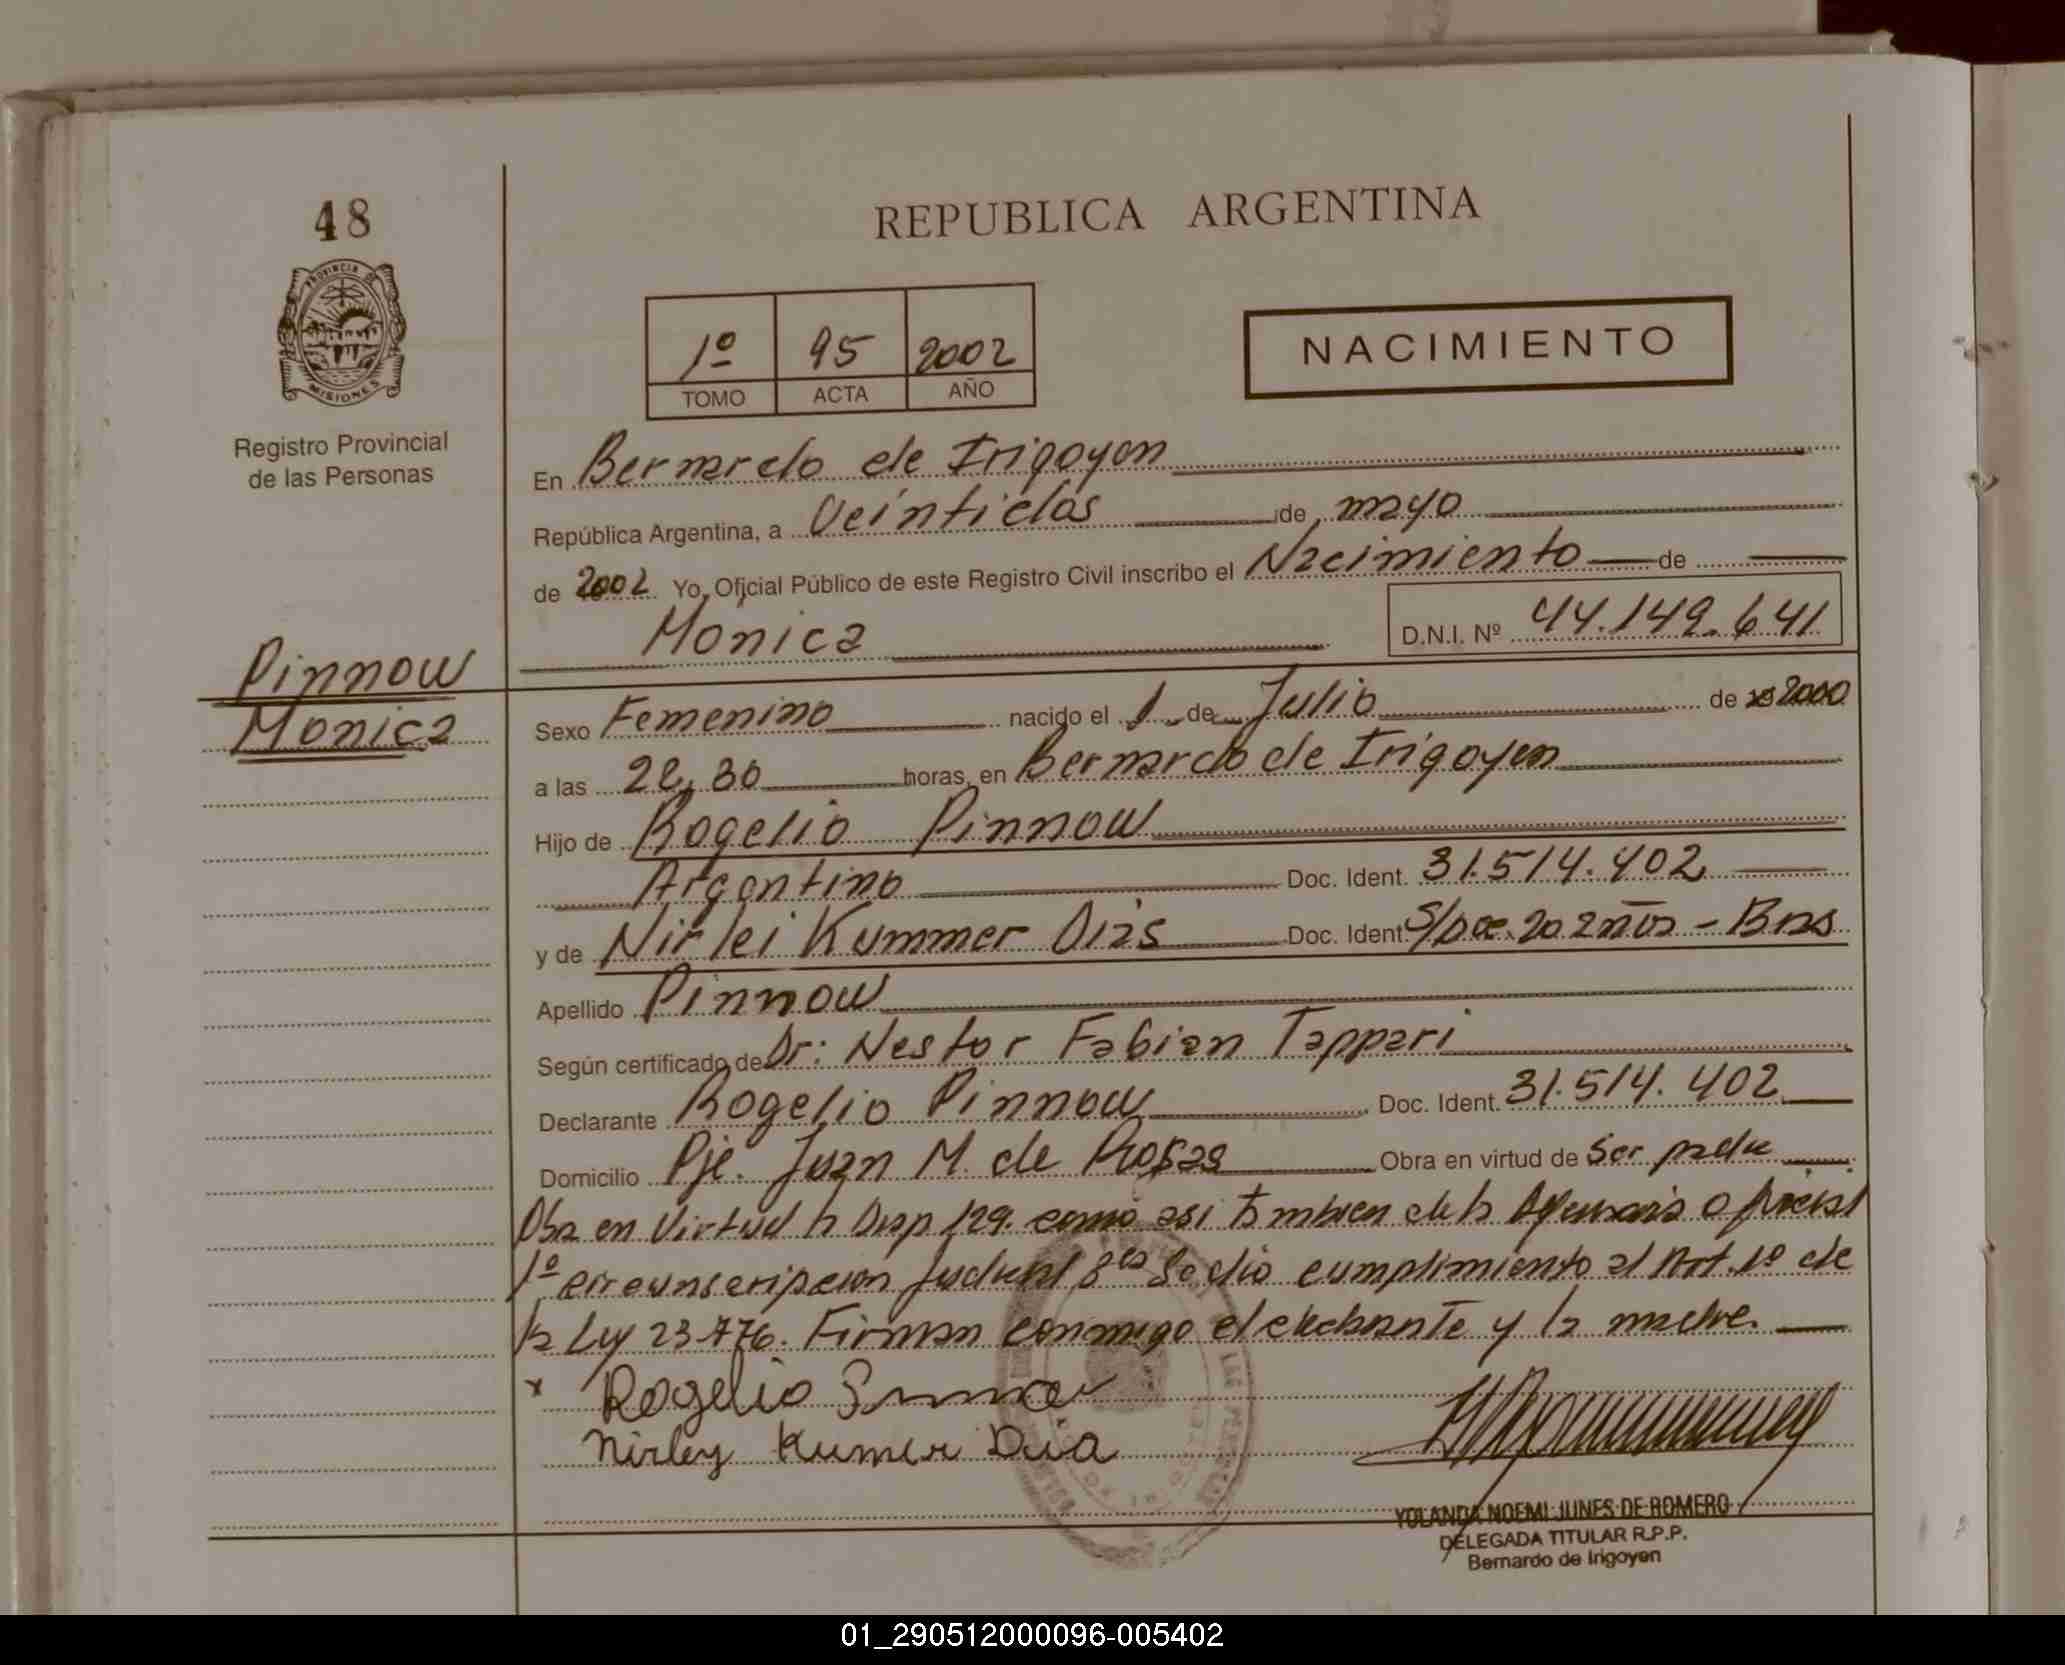 48
REPUBLICA ARGENTINA
PROVINCIA DE
MISIONES
Registro Provincial
de las Personas
1º 95 2002
TOMO ACTA AÑO
NACIMIENTO
En Bernardo de Irigoyen
República Argentina, a Veintidos de mayo
de 2002 Yo, Oficial Público de este Registro Civil inscribo el Nacimiento de
Mónica D.N.I. Nº 44.149.641
Pinnow
Monica
Sexo Femenino nacido el 1 de Julio de 2000
a las 22,30 horas, en Bernardo de Irigoyen
Hijo de Rogelio Pinnow
Argentino Doc. Ident. 31.514.402
y de Nirlei Kummer Dias Doc. Ident. S/Doc. 20 años - Bras
Apellido Pinnow
Según certificado de Dr: Nestor Fabian Tappari
Declarante Rogelio Pinnow Doc. Ident. 31.514.402
Domicilio Pje. Juan M. de Rosas Obra en virtud de Ser padre
Obra en Virtud la Disp 129. como asi tambien de la oficial
1º circunscripcion Judicial Se dio cumplimiento al Art. 1º de
la Ley 23.776. Firman conmigo el declarante y la madre.
x Rogelio
Nirley Kumer Dia
YOLANDA NOEMI JUNES DE ROMERO
DELEGADA TITULAR R.P.P.
Bernardo de Irigoyen
01_290512000096-005402